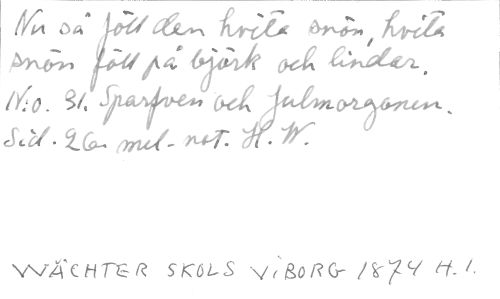 Nu så föll den hvita snön, hvita
snön föll på björk och lindar.
N:o. 31. Sparfven och Julmorgonen.
Sid. 26. mel-not. H. W.
WÄCHTER SKOLS VIBORG 1874 H.1.